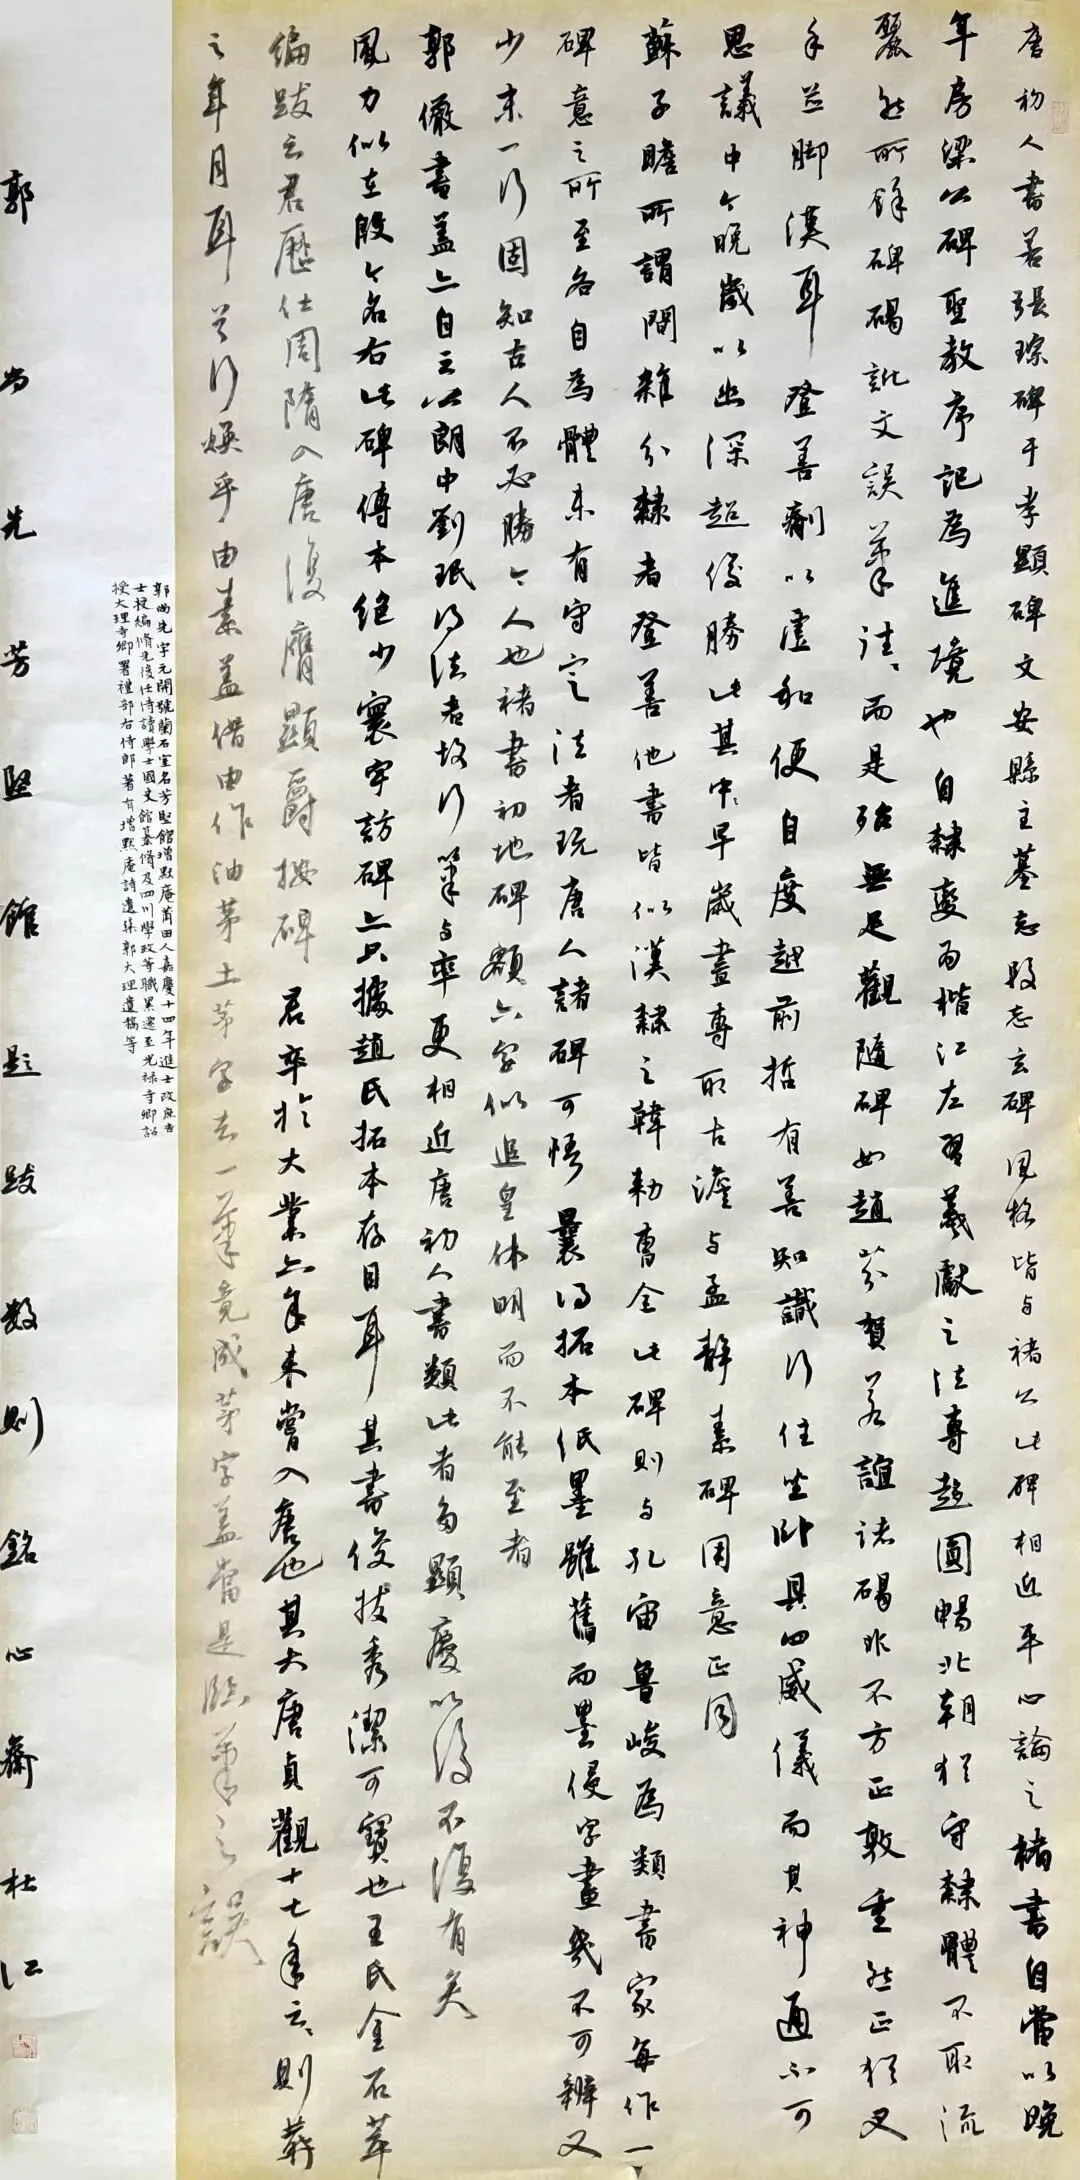 唐初人書若張琮碑于孝顯碑文安縣主墓志段志玄碑風格皆与褚公此碑相近平心論之褚書自當以晚
年房梁公碑聖教序記為進境也自隸變為楷江左習羲獻之法專趨圓暢北朝猶守隸體不取流
麗然所餘碑碣訛文誤筆詿而是殆無足觀隨碑如趙芬賀若誼諸碣非不方正敦重然正猶叉
手並腳漢耳登善劑以虛和便自度越前哲有善知識行住坐卧具四威儀而其神通不可
思議中々晚歲以幽深超俊勝此其中早歲書專取古澹与孟靜素碑用意正同
蘇子瞻所謂間雜分隸者登善他書皆似漢隸之韓勑曹全此碑則与孔宙魯峻為類書家每作一
碑意之所至各自為體未有守定法者玩唐人諸碑可悟曩得拓本紙墨雖舊而墨侵字畫幾不可辨又
少末一行固知古人不必勝今人也褚書初地碑額六字似追皇休明而不能至者
郭儼書蓋亦自主以朗中劉珉得法者故行筆与率更相近唐初人書類此者多顯慶以後不復有矣
風力似在殷令名右此碑傳本絕少寰宇訪碑亦只據趙氏拓本存目耳其書俊拔秀潔可寶也王氏金石萃
編跋云君歷仕周隋入唐復膺顯爵按碑君卒於大業六年未嘗入唐也其大唐貞觀十七年云々則葬
之年月耳是行煥乎由素蓋借由作油茅土茅字去一筆竟成茅字蓋當是臨筆之誤
郭尚先芳堅館題跋數則銘心齋杜江
郭尚先字元開號蘭石室名芳堅館增默庵莆田人嘉慶十四年進士改庶吉
士授編脩先後任侍讀學士國史館纂脩及四川學政等職累遷至光祿寺卿詔
授大理寺卿署禮部右侍郎著有增默庵詩遺集郭大理遺稿等